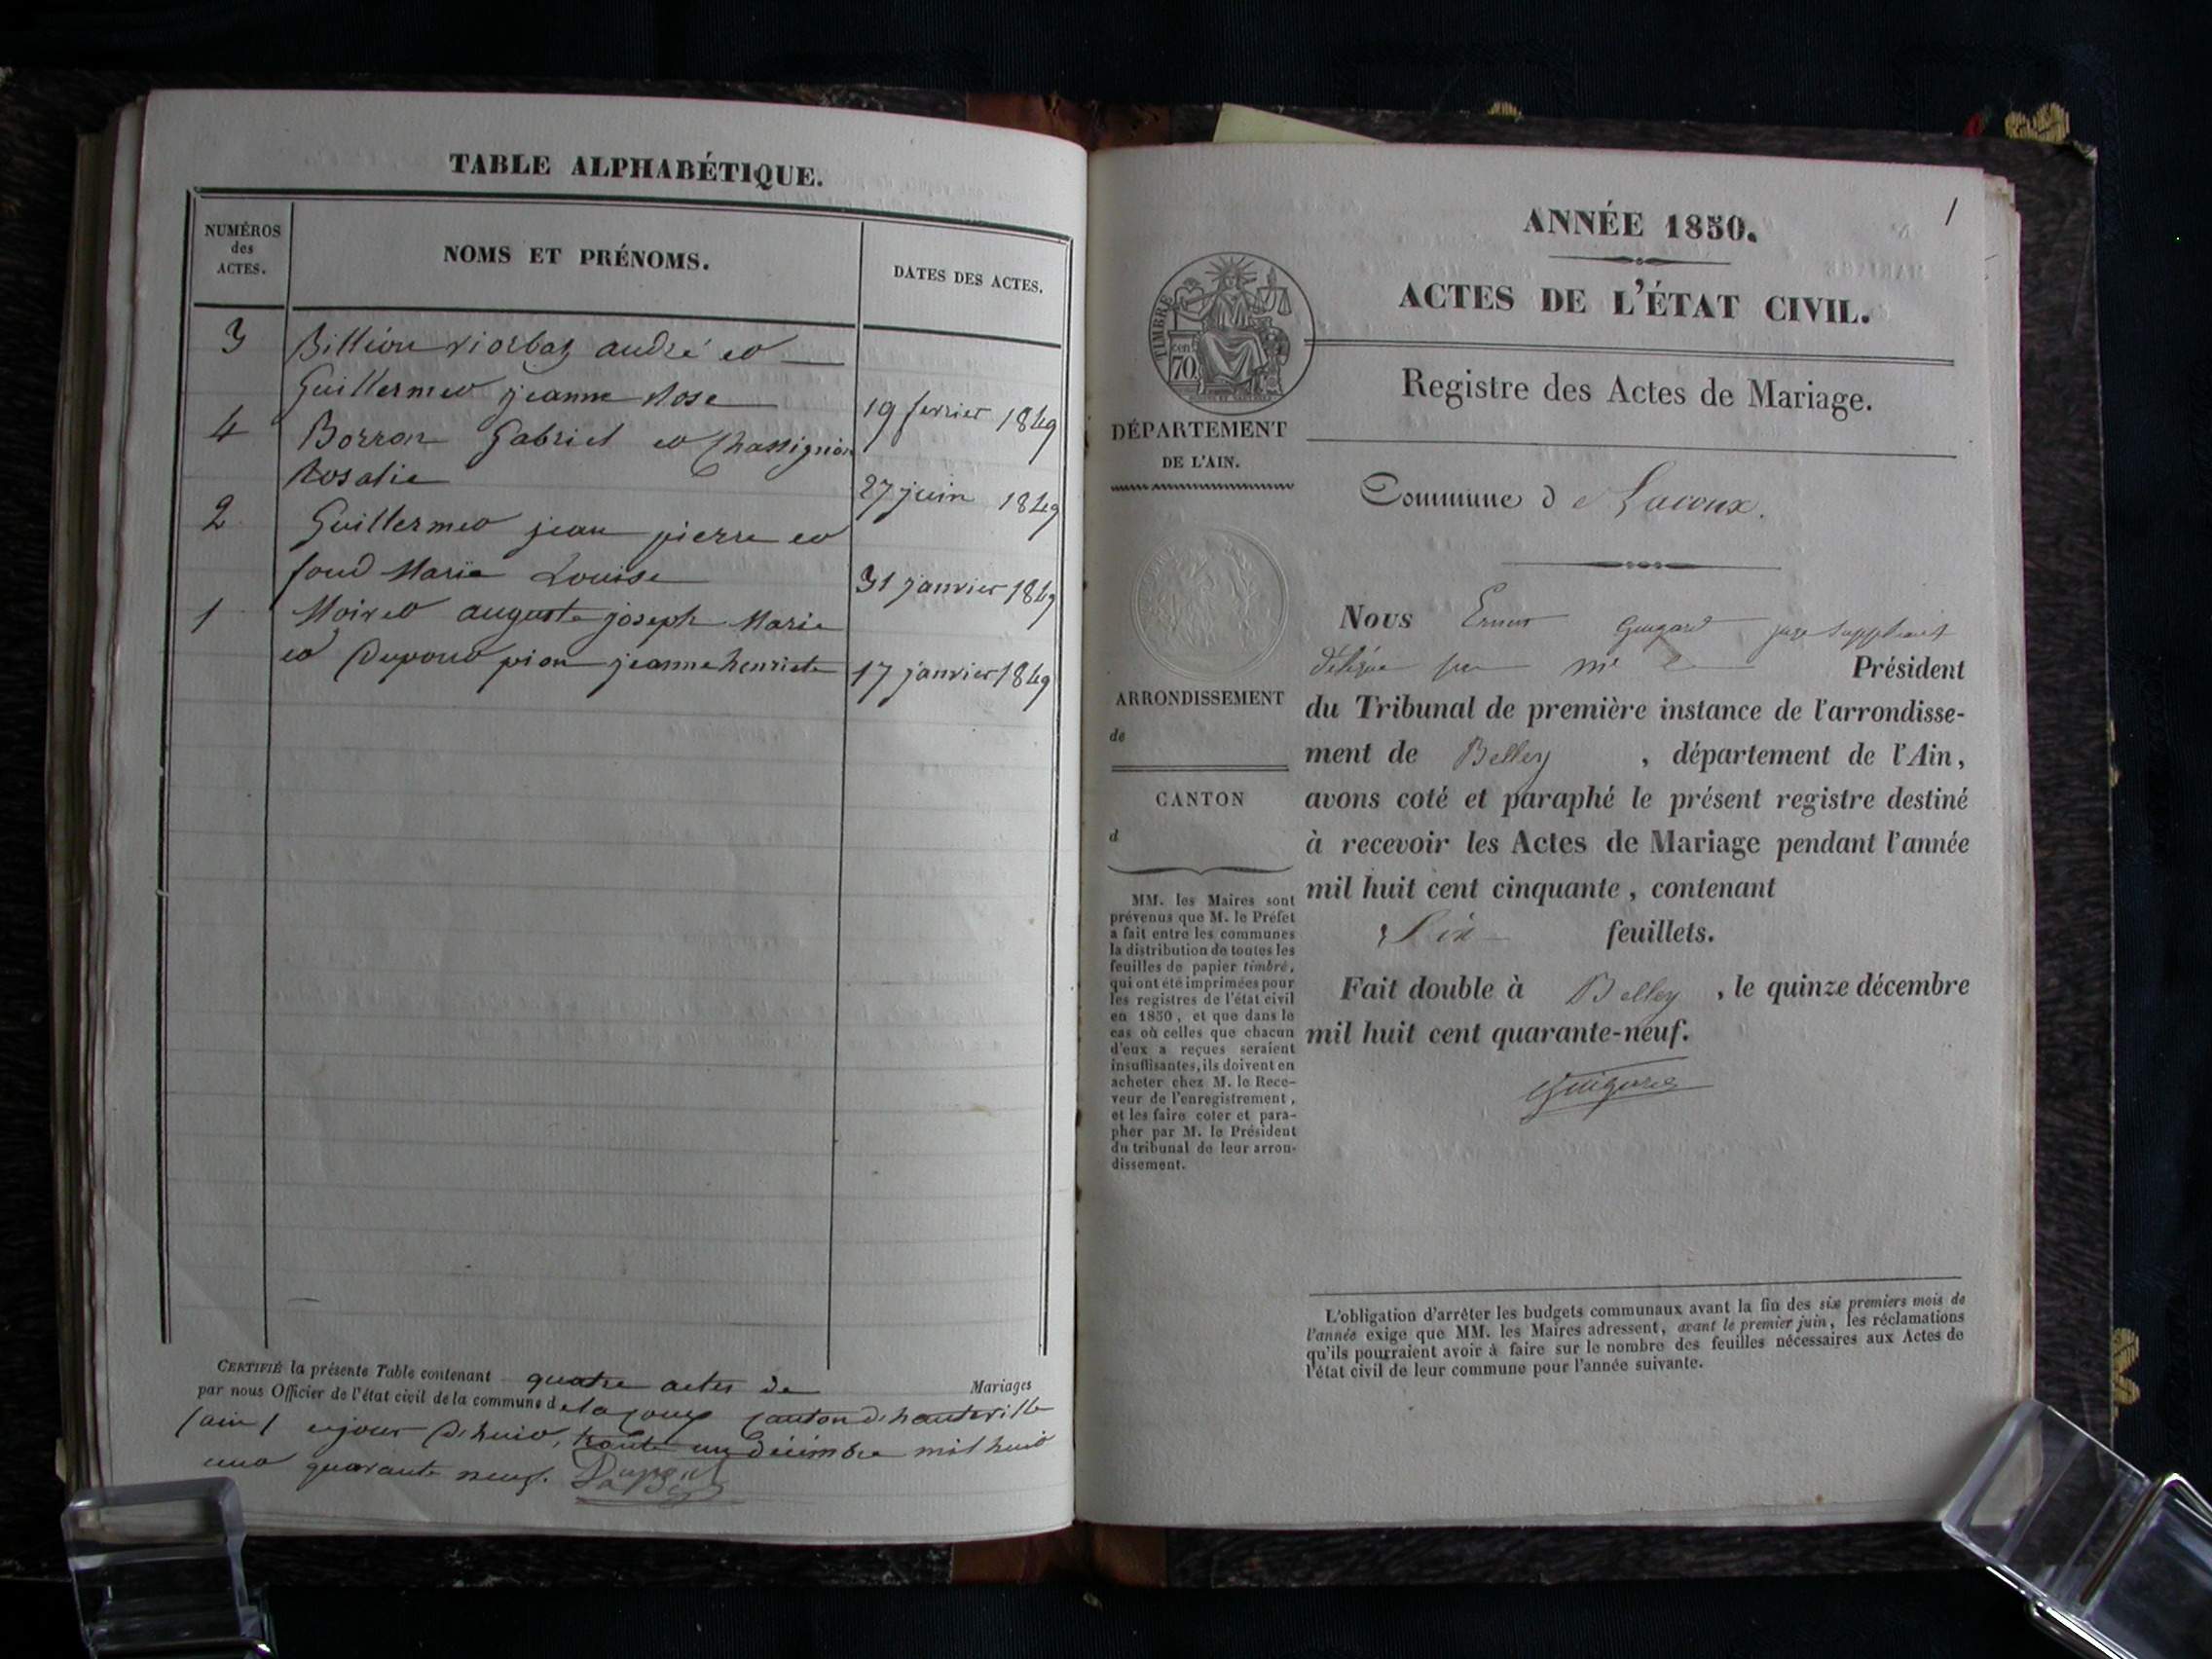 TABLE ALPHABÉTIQUE.
NUMÉROS
des
ACTES.
NOMS ET PRÉNOMS.
DATES DES ACTES.
3 Billion andré et
Guillermet jeanne Rose 19 fevrier 1849
4 Borron Gabriel et Chassignon
Rosalie 27 juin 1849
2 Guillermet jean pierre et
Marie Louise 31 janvier 1849
1 Moiret auguste joseph Marie
et Dupont pion jeanne henriete 17 janvier 1849
CERTIFIÉ la présente Table contenant quatre actes de Mariages
par nous Officier de l'état civil de la commune de lacoux canton de hauteville
(ain) cejour d'huit, trante un décembre mil huit
cent quarante neuf.
1
ANNÉE 1850.
ACTES DE L'ÉTAT CIVIL.
Registre des Actes de Mariage.
TIMBRE
70 cent
DÉPARTEMENT
DE L'AIN.
Commune de Lacoux.
ARRONDISSEMENT
de
CANTON
d
MM. les Maires sont
prévenus que M. le Préfet
a fait entre les communes
la distribution de toutes les
feuilles de papier timbré,
qui ont été imprimées pour
les registres de l'état civil
en 1850, et que dans le
cas où celles que chacun
d'eux a reçues seraient
insuffisantes, ils doivent en
acheter chez M. le Rece-
veur de l'enregistrement,
et les faire coter et para-
pher par M. le Président
du tribunal de leur arron-
dissement.
Nous Ernest Guigard juge Suppléant
délégué par Mr Président
du Tribunal de première instance de l'arrondisse-
ment de Belley , département de l'Ain,
avons coté et paraphé le présent registre destiné
à recevoir les Actes de Mariage pendant l'année
mil huit cent cinquante, contenant
Six feuillets.
Fait double à Belley , le quinze décembre
mil huit cent quarante-neuf.
Guigard
L'obligation d'arrêter les budgets communaux avant la fin des six premiers mois de
l'année exige que MM. les Maires adressent, avant le premier juin, les réclamations
qu'ils pourraient avoir à faire sur le nombre des feuilles nécessaires aux Actes de
l'état civil de leur commune pour l'année suivante.